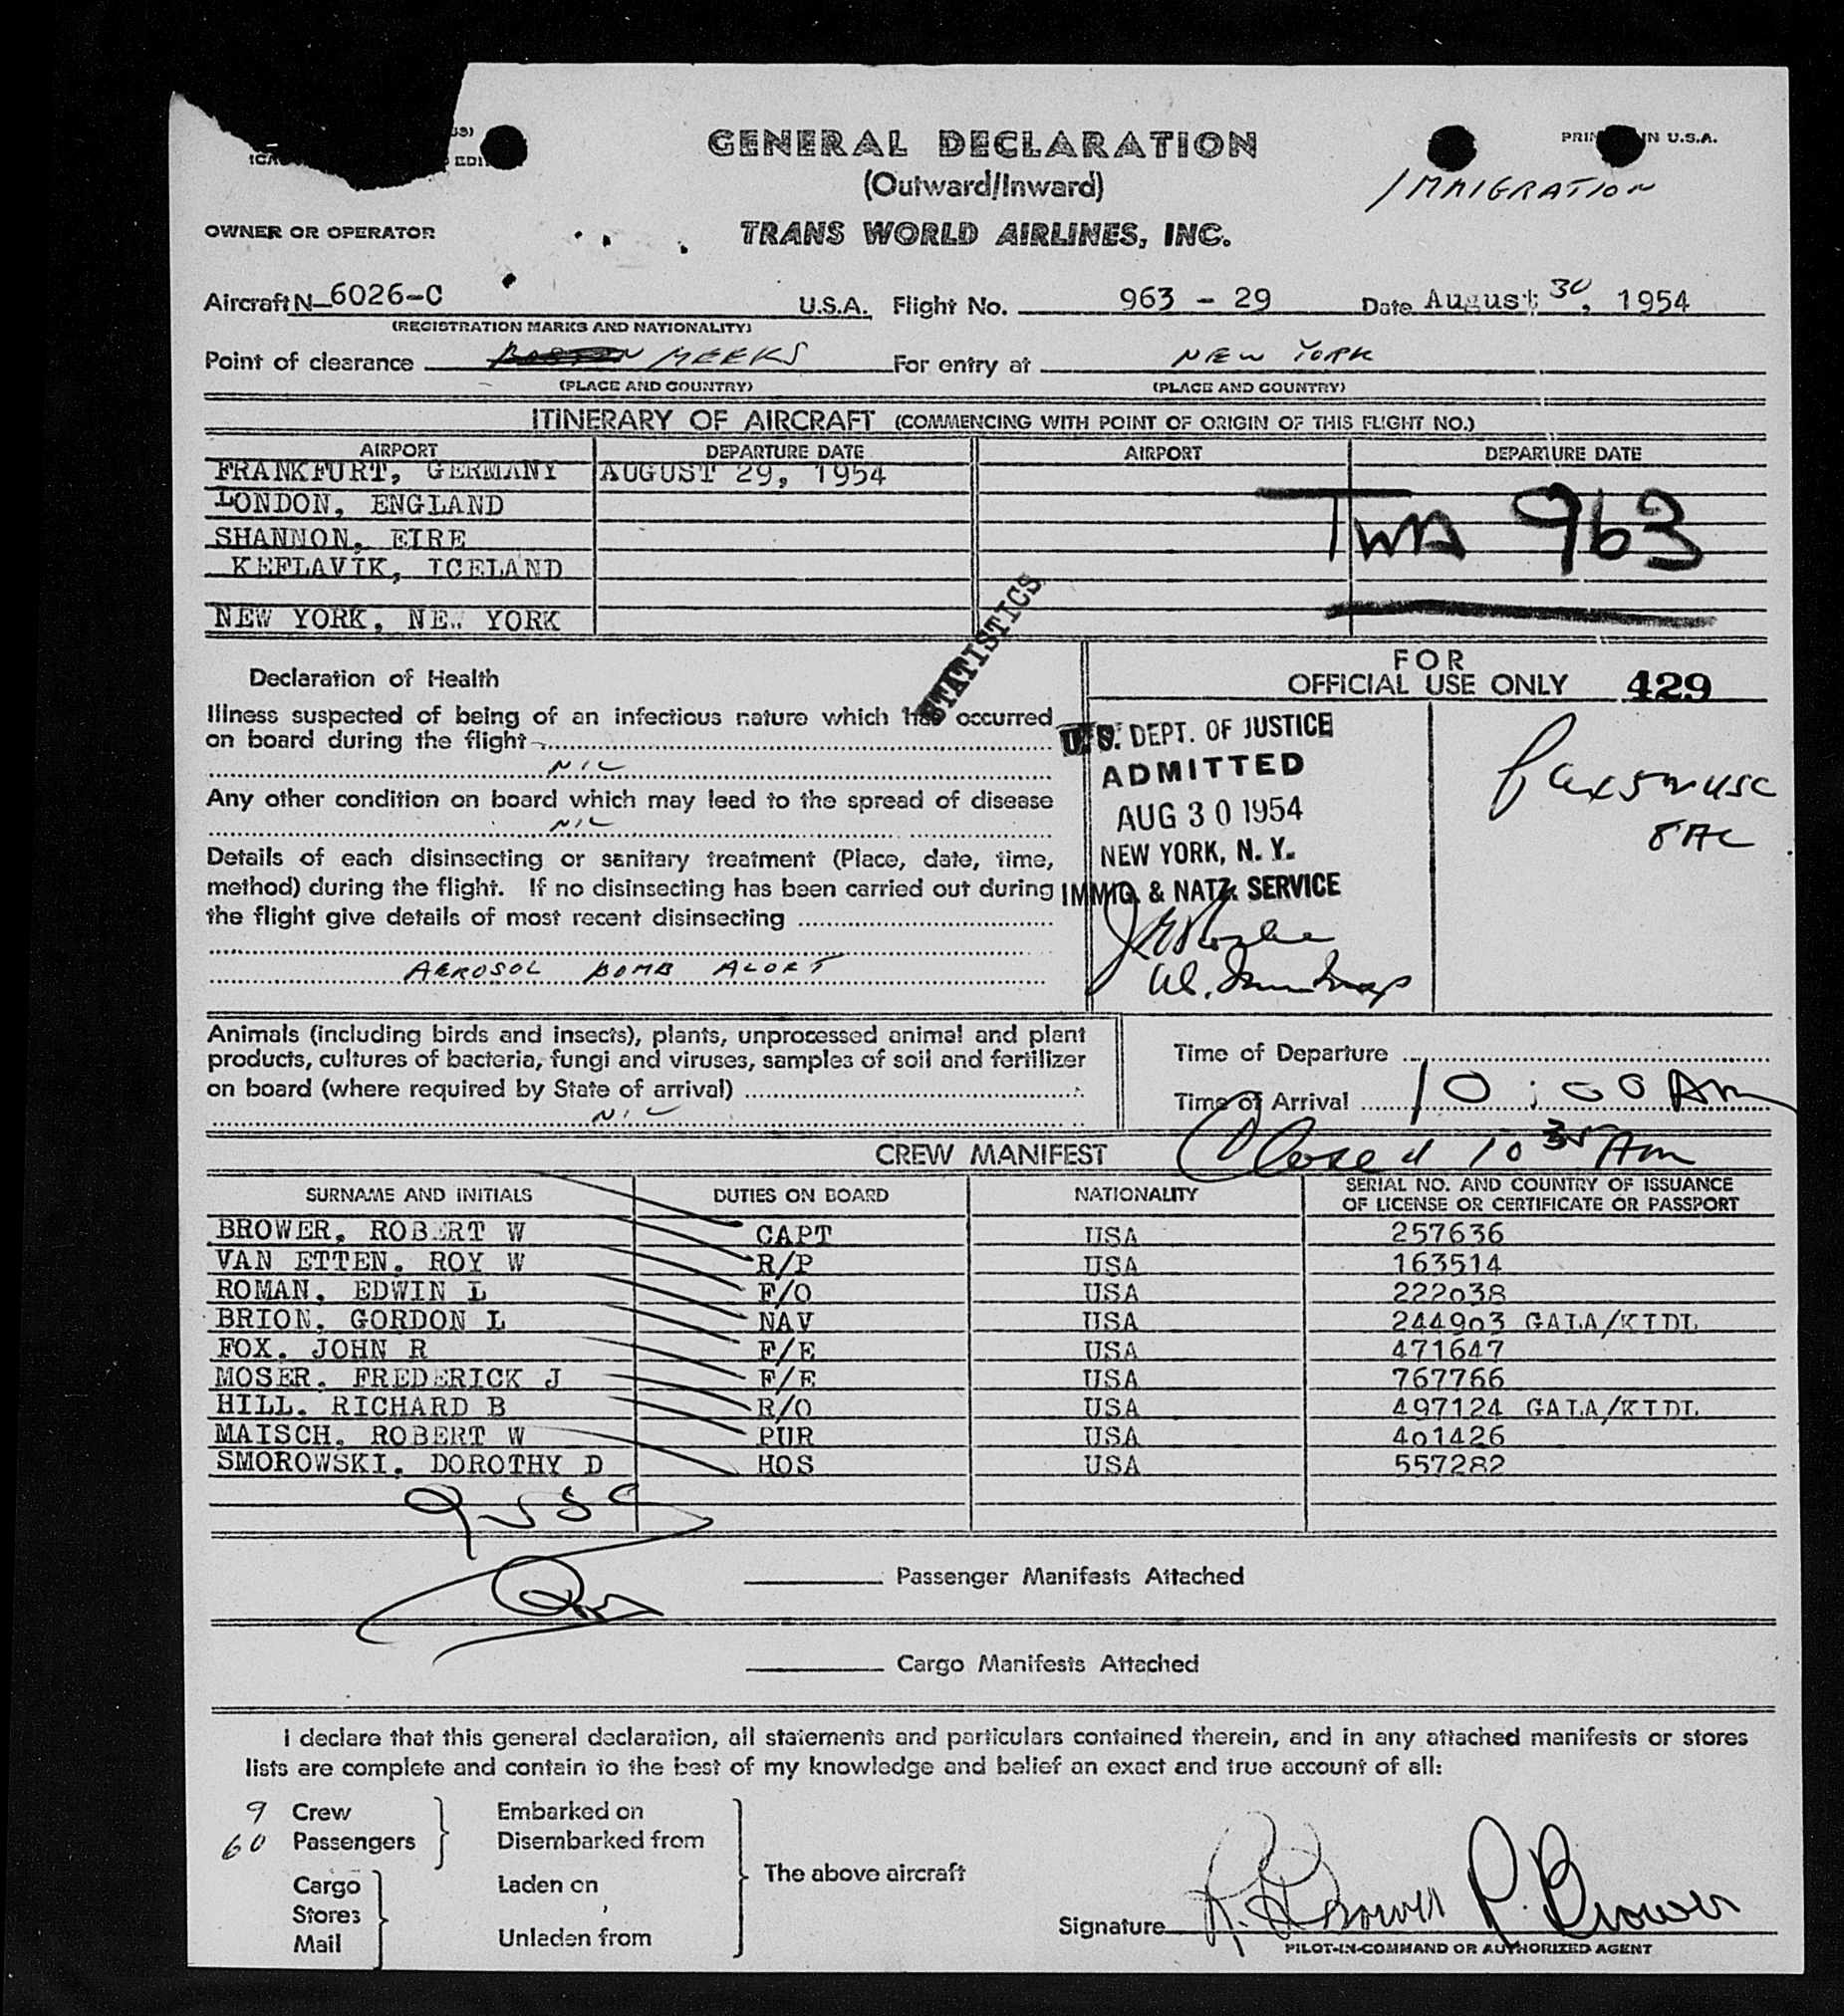 GENERAL DECLARATION
(Outward/Inward)
IN U.S.A.
IMMIGRATION
OWNER OR OPERATOR
TRANS WORLD AIRLINES, INC.
Aircraft N-6026-C U.S.A. Flight No. 963 - 29 Date August 30, 1954
(REGISTRATION MARKS AND NATIONALITY)
Point of clearance MEEKS For entry at NEW YORK
(PLACE AND COUNTRY) (PLACE AND COUNTRY)
ITINERARY OF AIRCRAFT (COMMENCING WITH POINT OF ORIGIN OF THIS FLIGHT NO.)
AIRPORT DEPARTURE DATE AIRPORT DEPARTURE DATE
FRANKFURT, GERMANY AUGUST 29, 1954
LONDON, ENGLAND
TWA 963
SHANNON, EIRE
KEFLAVIK, ICELAND
NEW YORK, NEW YORK
STATISTICS
FOR
OFFICIAL USE ONLY 429
Declaration of Health
Illness suspected of being of an infectious nature which has occurred
on board during the flight
NIL
Any other condition on board which may lead to the spread of disease
NIL
Details of each disinsecting or sanitary treatment (Place, date, time,
method) during the flight. If no disinsecting has been carried out during
the flight give details of most recent disinsecting
AEROSOL BOMB ALOFT
U. S. DEPT. OF JUSTICE
ADMITTED
AUG 30 1954
NEW YORK, N. Y.
IMMIG. & NATZ. SERVICE
Animals (including birds and insects), plants, unprocessed animal and plant
products, cultures of bacteria, fungi and viruses, samples of soil and fertilizer
on board (where required by State of arrival)
NIL
Time of Departure
Time of Arrival 10:00 AM
CREW MANIFEST Closed 10 35 AM
SURNAME AND INITIALS DUTIES ON BOARD NATIONALITY SERIAL NO. AND COUNTRY OF ISSUANCE
OF LICENSE OR CERTIFICATE OR PASSPORT
BROWER, ROBERT W CAPT USA 257636
VAN ETTEN, ROY W R/P USA 163514
ROMAN, EDWIN L F/O USA 222038
BRION, GORDON L NAV USA 244903 GALA/KIDL
FOX, JOHN R F/E USA 471647
MOSER, FREDERICK J F/E USA 767766
HILL, RICHARD B R/O USA 497124 GALA/KIDL
MAISCH, ROBERT W PUR USA 401426
SMOROWSKI, DOROTHY D HOS USA 557282
Passenger Manifests Attached
Cargo Manifests Attached
I declare that this general declaration, all statements and particulars contained therein, and in any attached manifests or stores
lists are complete and contain to the best of my knowledge and belief an exact and true account of all:
9 Crew Embarked on
60 Passengers Disembarked from
The above aircraft
Cargo Laden on
Stores
Mail Unladen from
Signature R. Brower R. Brower
PILOT-IN-COMMAND OR AUTHORIZED AGENT